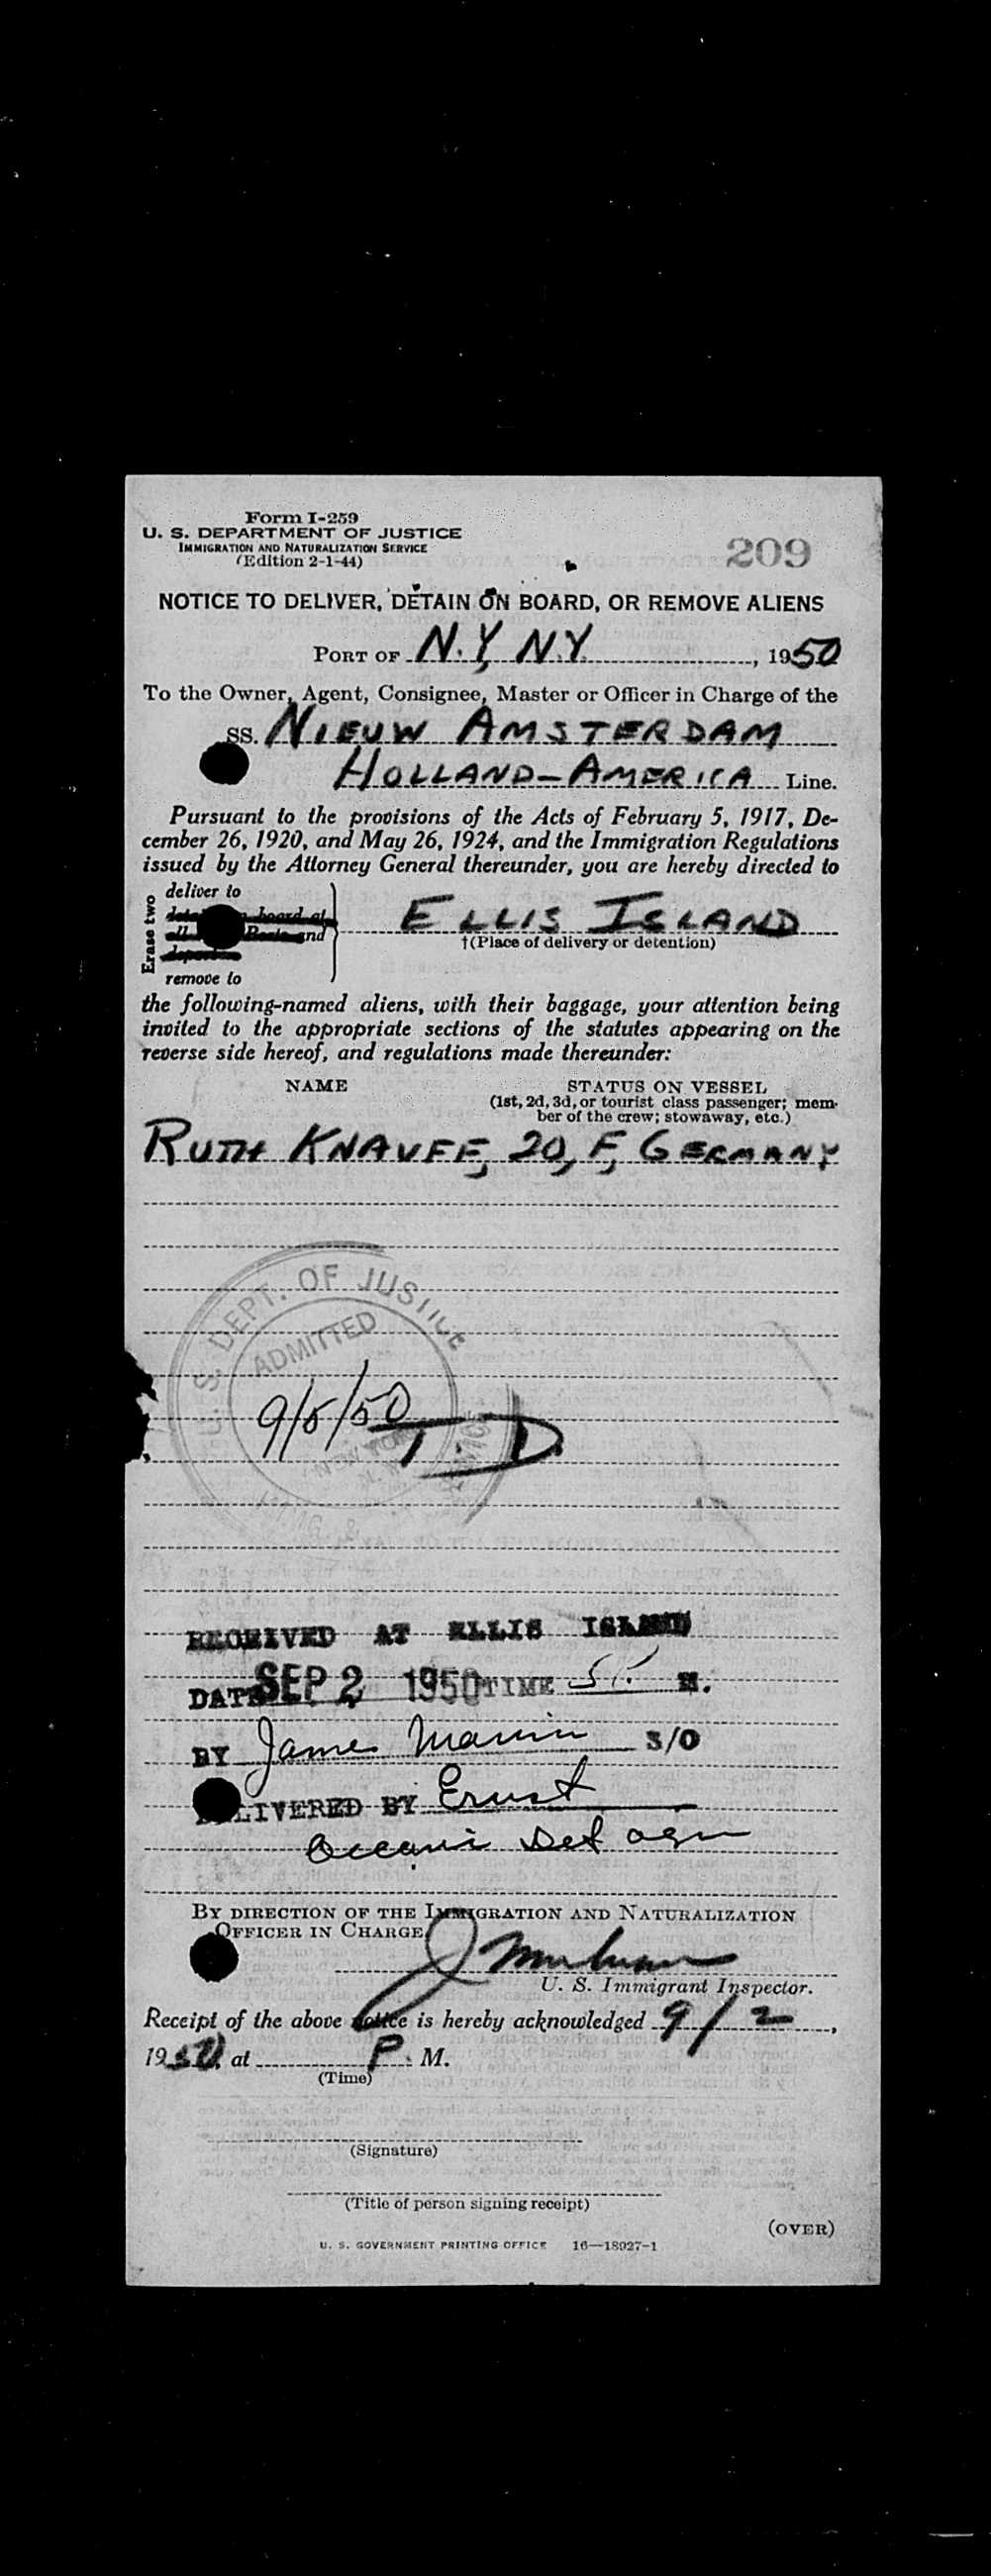 Form I-259
U. S. DEPARTMENT OF JUSTICE
IMMIGRATION AND NATURALIZATION SERVICE
(Edition 2-1-44)
209
NOTICE TO DELIVER, DETAIN ON BOARD, OR REMOVE ALIENS
PORT OF N.Y, N.Y. , 1950
To the Owner, Agent, Consignee, Master or Officer in Charge of the
SS. NIEUW AMSTERDAM
HOLLAND-AMERICA Line.
Pursuant to the provisions of the Acts of February 5, 1917, De-
cember 26, 1920, and May 26, 1924, and the Immigration Regulations
issued by the Attorney General thereunder, you are hereby directed to
Erase two
deliver to
board at
and
remove to
ELLIS ISLAND
†(Place of delivery or detention)
the following-named aliens, with their baggage, your attention being
invited to the appropriate sections of the statutes appearing on the
reverse side hereof, and regulations made thereunder:
NAME
STATUS ON VESSEL
(1st, 2d, 3d, or tourist class passenger; mem-
ber of the crew; stowaway, etc.)
RUTH KNAUFF, 20, F, GERMANY
U. S. DEPT. OF JUSTICE
ADMITTED
9/5/50
NEW YORK
RECEIVED AT ELLIS ISLAND
DATE SEP 2 1950 TIME M.
BY James S/O
DELIVERED BY Ernst
BY DIRECTION OF THE IMMIGRATION AND NATURALIZATION
OFFICER IN CHARGE
U. S. Immigrant Inspector.
Receipt of the above notice is hereby acknowledged 9/2 ,
1950 at P. M.
(Time)
(Signature)
(Title of person signing receipt)
(OVER)
U. S. GOVERNMENT PRINTING OFFICE 16—18927-1